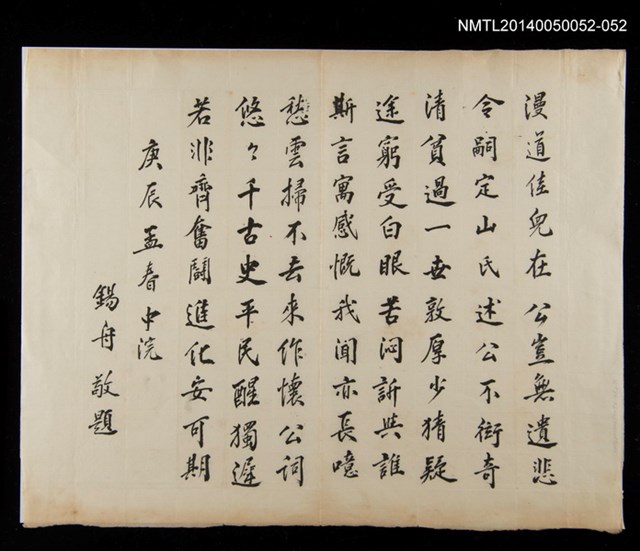 NMTL20140050052-052
漫道佳兒在公豈無遺悲
令嗣定山氏述公不衒奇
清貧過一世敦厚少猜疑
途窮受白眼苦悶訴與誰
斯言寓感慨我聞亦長噫
愁雲掃不去來作懷公詞
悠々千古史平民醒獨遲
若非齊奮鬪進化安可期
庚辰孟春中浣
錫舟敬題